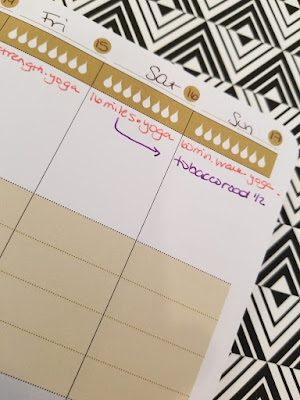 Fri
15
Sat
16
Sun
17
strength.yoga
miles.yoga
60min.walk.yoga.
tobaccoroad 1/2